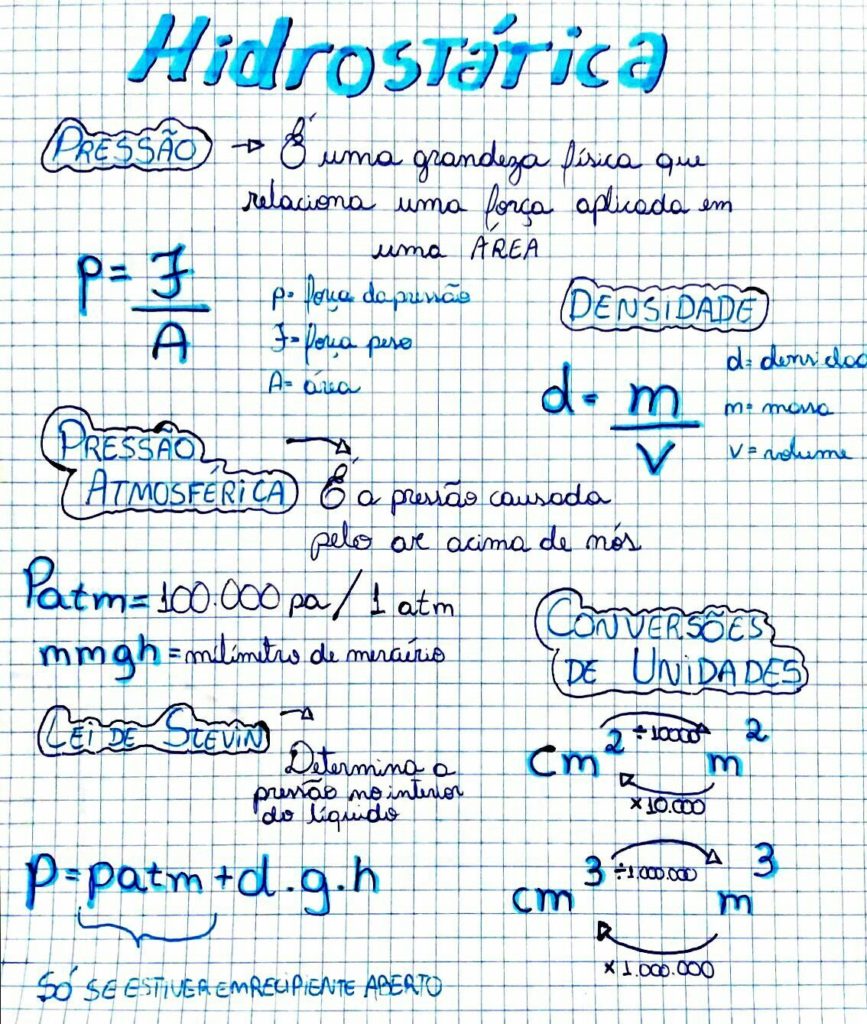 Hidrostática
PRESSÃO → É uma grandeza física que
relaciona uma força aplicada em
uma ÁREA
p = F
A
p= força da pressão
F= força peso
A= área
DENSIDADE
d = m
v
d= densidad
m= massa
v= volume
PRESSÃO →
ATMOSFÉRICA É a pressão causada
pelo ar acima de nós
Patm= 100.000 pa / 1 atm
mmgh = milímetro de mercúrio
CONVERSÕES
DE UNIDADES
cm² ÷10000 m²
×10.000
cm³ ÷1.000.000 m³
×1.000.000
LEI DE STEVIN →
Determina a
pressão no interior
do líquido
p=patm+d.g.h
SÓ SE ESTIVER EM RECIPIENTE ABERTO